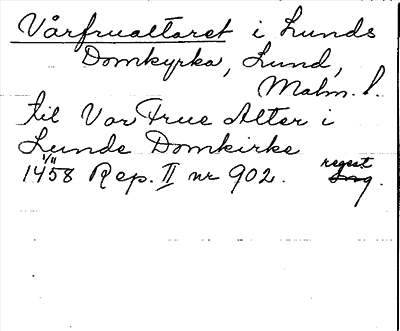 Vårfrualtaret i Lunds
Domkyrka, Lund,
Malm. l.
til Vor Frue Alter i
Lunde Domkirke
1/11
1458 Rep. II nr 902. regest